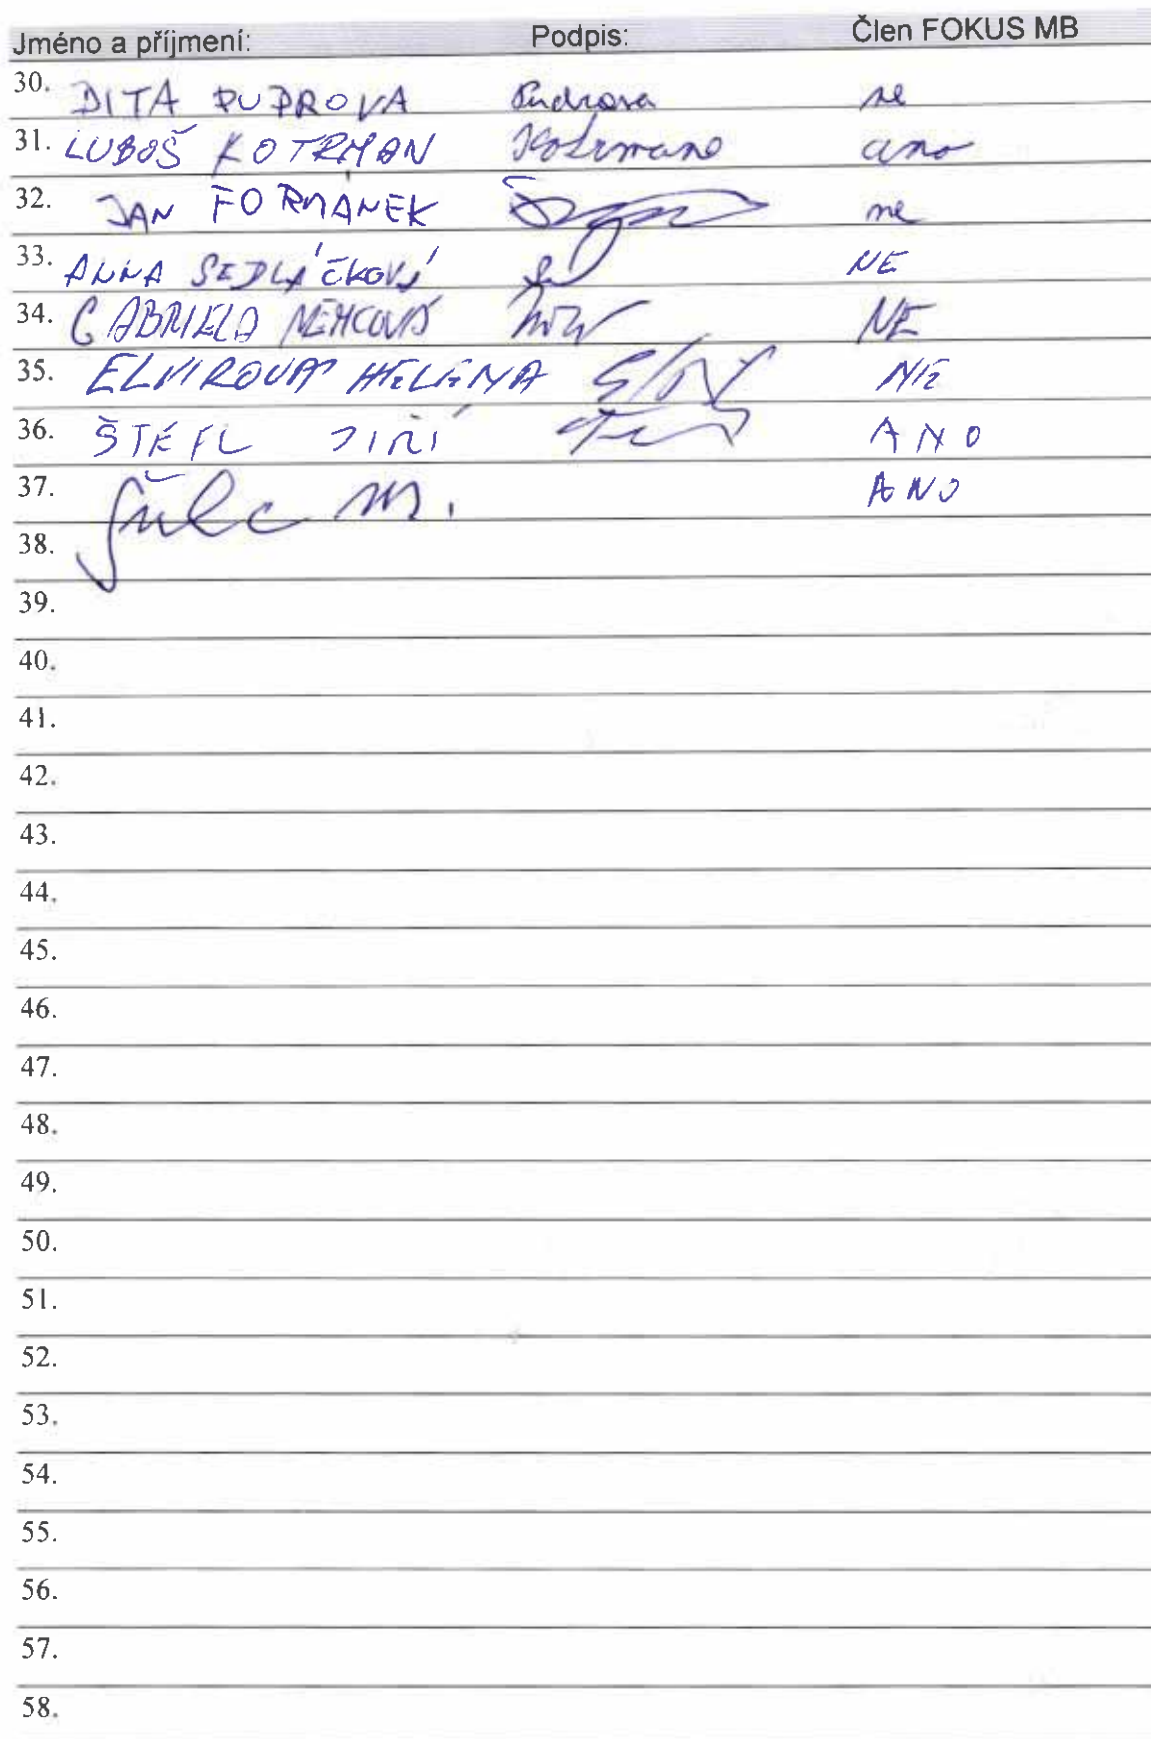 Jméno a příjmení: Podpis: Člen FOKUS MB
30. DITA PUDROVA Pudrova ne
31. LUBOŠ KOTRMAN Kotrman ano
32. JAN FORMÁNEK ne
33. ANNA SEDLÁČKOVÁ NE
34. GABRIELA NĚMCOVÁ NE
35. ELMIROVA HELENA NE
36. ŠTÉFL JIŘÍ ANO
37. Šulc M. ANO
38.
39.
40.
41.
42.
43.
44.
45.
46.
47.
48.
49.
50.
51.
52.
53.
54.
55.
56.
57.
58.